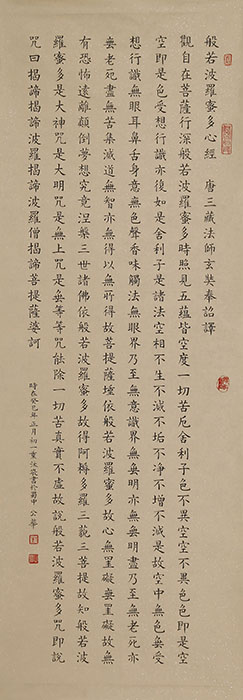 般若波羅蜜多心經 唐三藏法師玄奘奉詔譯
觀自在菩薩行深般若波羅蜜多時照見五蘊皆空度一切苦厄舍利子色不異空空不異色色即是空
空即是色受想行識亦復如是舍利子是諸法空相不生不滅不垢不淨不增不減是故空中無色無受
想行識無眼耳鼻舌身意無色聲香味觸法無眼界乃至無意識界無無明亦無無明盡乃至無老死亦
無老死盡無苦集滅道無智亦無得以無所得故菩提薩埵依般若波羅蜜多故心無罣礙無罣礙故無
有恐怖遠離顛倒夢想究竟涅槃三世諸佛依般若波羅蜜多故得阿耨多羅三藐三菩提故知般若波
羅蜜多是大神咒是大明咒是無上咒是無等等咒能除一切苦真實不虛故說般若波羅蜜多咒即說
咒曰揭諦揭諦波羅揭諦波羅僧揭諦菩提薩婆訶
時在癸巳年正月初一書於蜀中